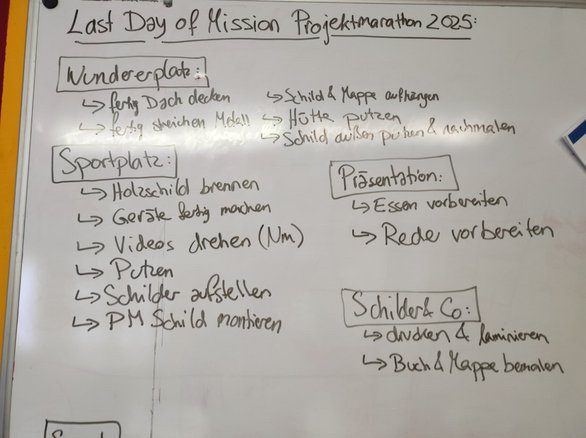 Last Day of Mission Projektmarathon 2025:
Wundererplatz:
↳ fertig Dach decken
↳ fertig streichen Metall
↳ Schild & Mappe aufhängen
↳ Hütte putzen
↳ Schild außen putzen & nachmalen
Sportplatz:
↳ Holzschild brennen
↳ Geräte fertig machen
↳ Videos drehen (Nm)
↳ Putzen
↳ Schilder aufstellen
↳ PM Schild montieren
Präsentation:
↳ Essen vorbereiten
↳ Rede vorbereiten
Schilder & Co:
↳ drucken & laminieren
↳ Buch & Mappe bemalen